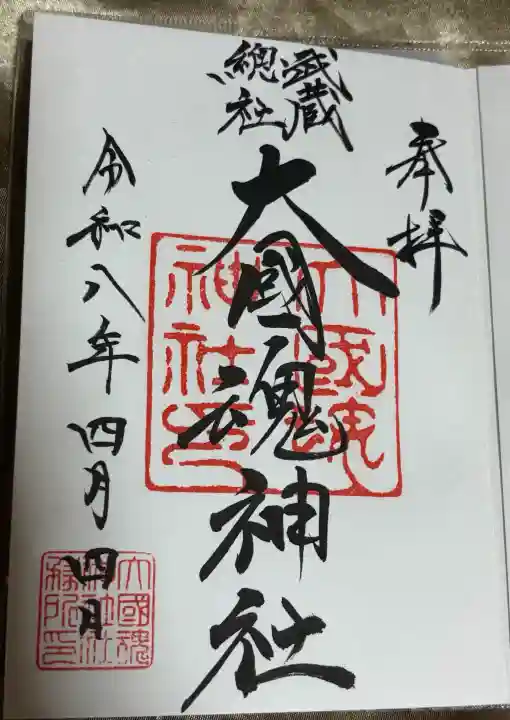 奉拝
武蔵
總社
大國魂神社
大國魂
神社印
令和八年四月四日
大國魂
神社社
務所印